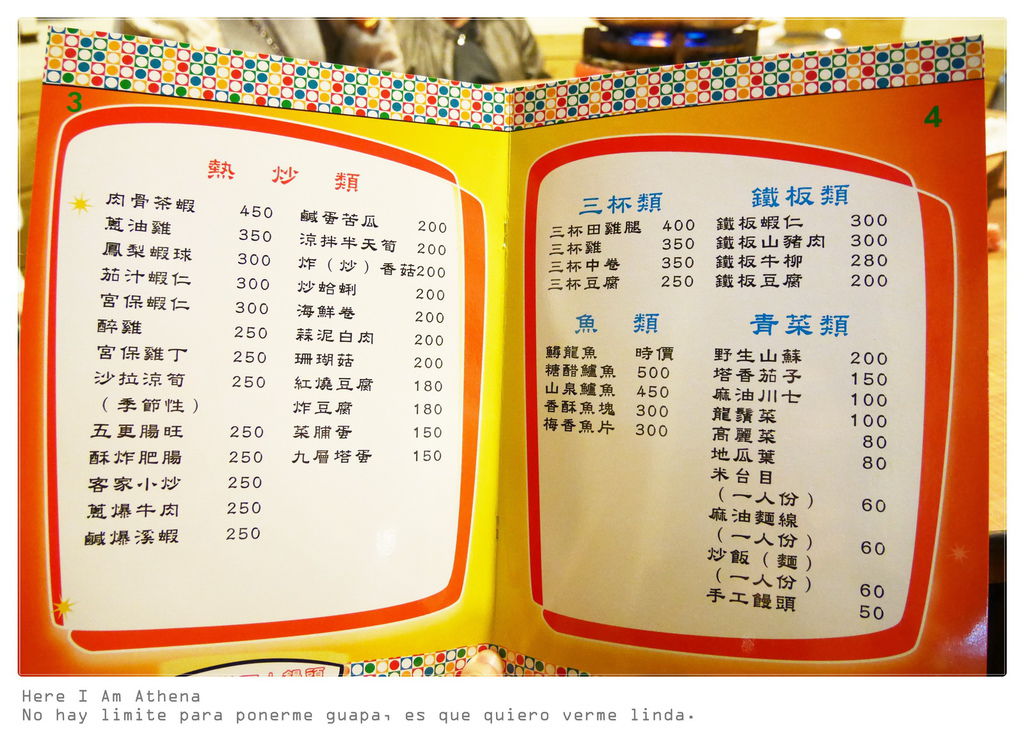 3
熱炒類
肉骨茶蝦 450
蔥油雞 350
鳳梨蝦球 300
茄汁蝦仁 300
宮保蝦仁 300
醉雞 250
宮保雞丁 250
沙拉涼筍 250
（季節性）
五更腸旺 250
酥炸肥腸 250
客家小炒 250
蔥爆牛肉 250
鹹爆溪蝦 250
鹹蛋苦瓜 200
涼拌半天筍 200
炸（炒）香菇200
炒蛤蜊 200
海鮮卷 200
蒜泥白肉 200
珊瑚菇 200
紅燒豆腐 180
炸豆腐 180
菜脯蛋 150
九層塔蛋 150
4
三杯類
三杯田雞腿 400
三杯雞 350
三杯中卷 350
三杯豆腐 250
魚類
鱘龍魚 時價
糖醋鱸魚 500
山泉鱸魚 450
香酥魚塊 300
梅香魚片 300
鐵板類
鐵板蝦仁 300
鐵板山豬肉 300
鐵板牛柳 280
鐵板豆腐 200
青菜類
野生山蘇 200
塔香茄子 150
麻油川七 100
龍鬚菜 100
高麗菜 80
地瓜葉 80
米台目
（一人份） 60
麻油麵線
（一人份） 60
炒飯（麵）
（一人份） 60
手工饅頭 50
Here I Am Athena
No hay limite para ponerme guapa, es que quiero verme linda.